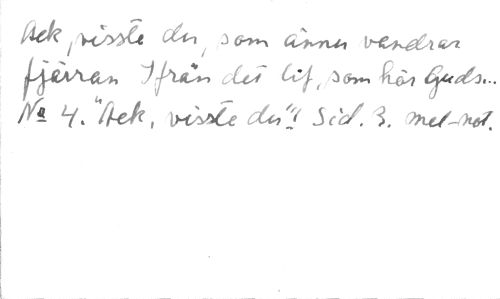 Ack, visste du, som ännu vandrar
fjärran Ifrån det lif, som hör Guds...
No 4. "Ack, visste du"! Sid. 3. mel-not.